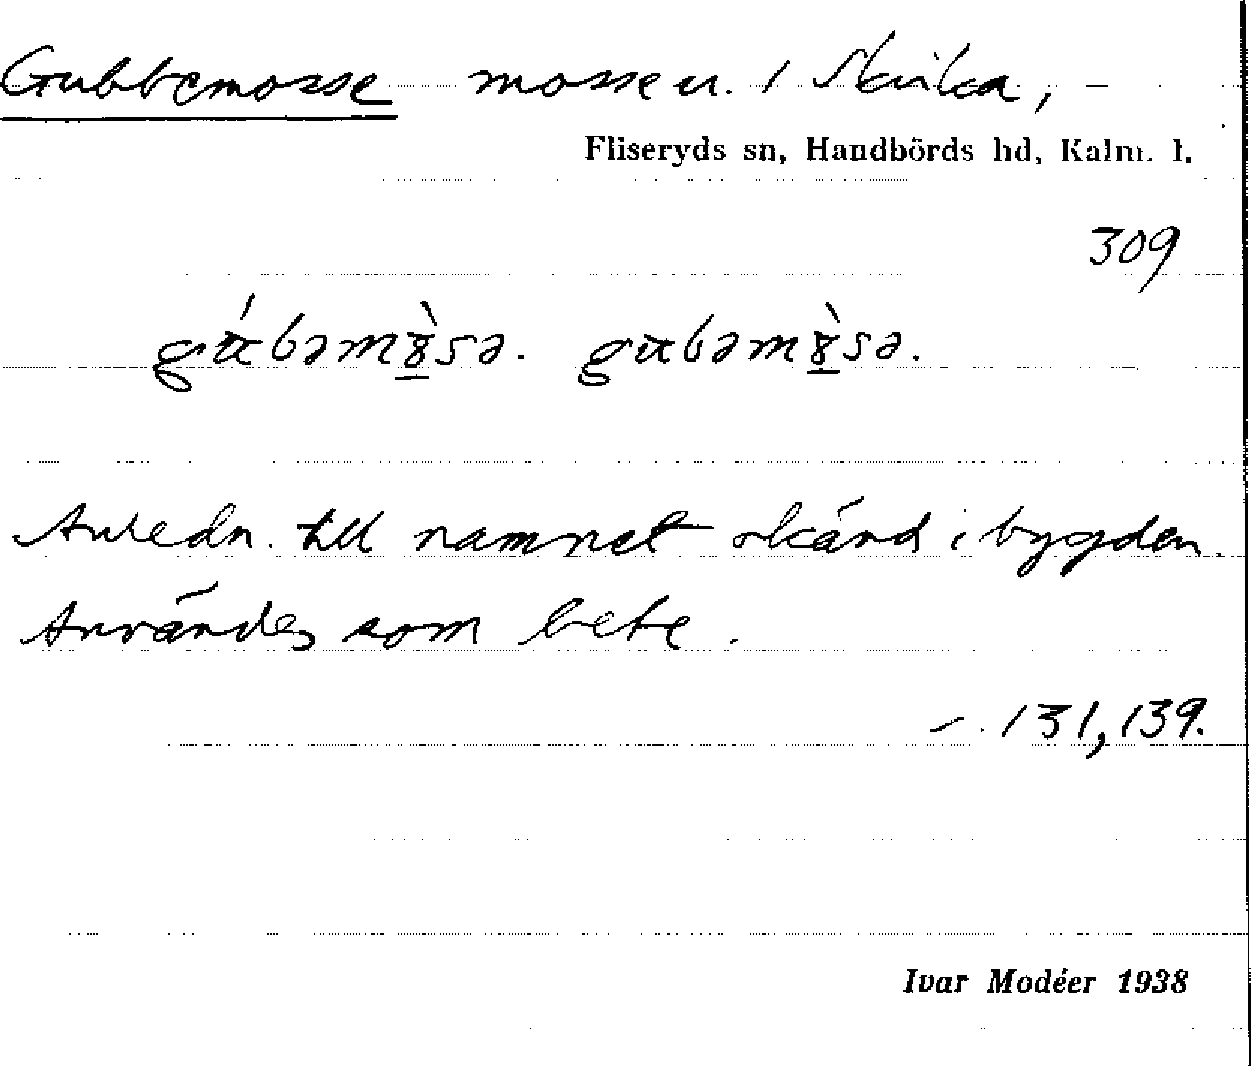 Gubbemosse mosse u. / Skvika, –
Fliseryds sn, Handbörds hd, Kalm. l.
309
gúbəmə̀sə. gubəmə̀sə.
Anledn. till namnet okänd i bygden.
Användes som bete.
–. 131, 139.
Ivar Modéer 1938